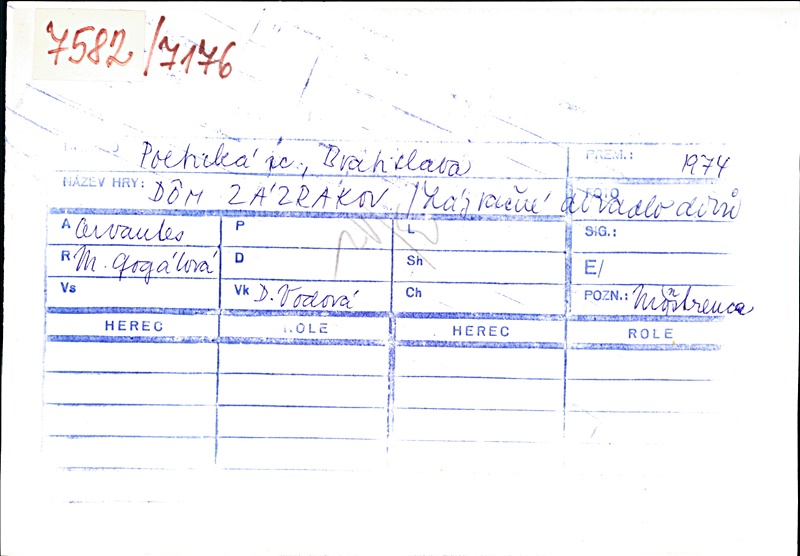 7582/7176
Poetická sc., Bratislava PREM.: 1974
NÁZEV HRY: DÔM ZÁZRAKOV / Zázračné divadlo divů
A Cervantes P L SIG.:
R M. Gogálová D Sh E/
Vs Vk D. Vodová Ch POZN.:
HEREC ROLE HEREC ROLE